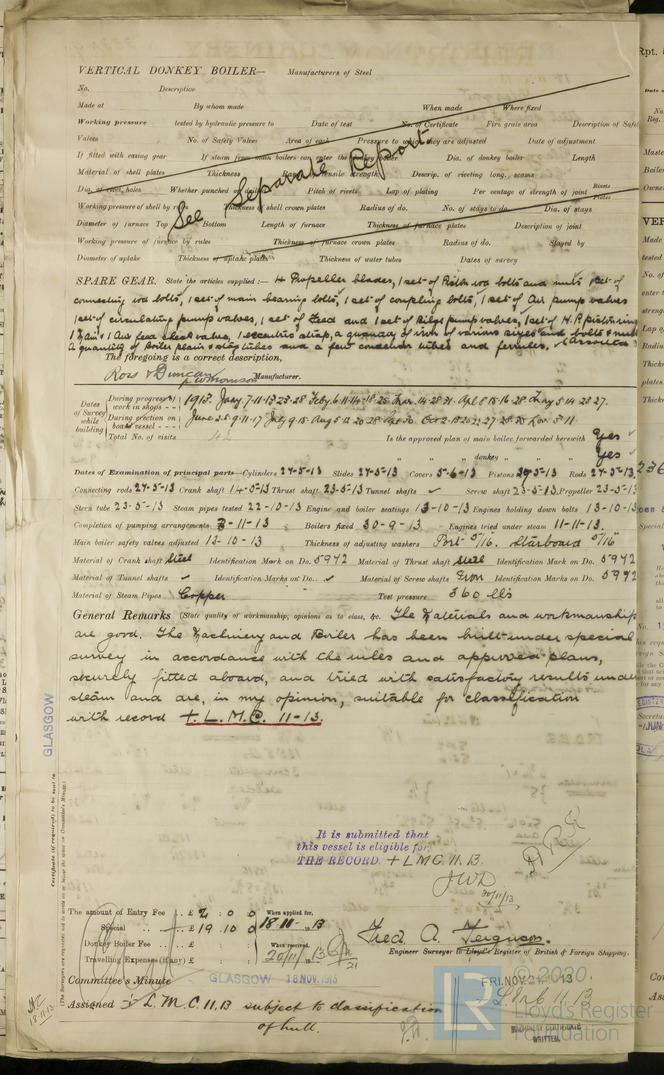 VERTICAL DONKEY BOILER— Manufacturers of Steel
No. Description
Made at By whom made When made Where fixed
Working pressure tested by hydraulic pressure to Date of test No. of Certificate Fire grate area Description of Safe
Valves No. of Safety Valves Area of each Pressure to which they are adjusted Date of adjustment
If fitted with easing gear If steam from main boilers can enter the donkey boiler Dia. of donkey boiler Length
Material of shell plates Thickness Range of tensile strength Descrip. of riveting long. seams
Dia. of rivet holes Whether punched or drilled Pitch of rivets Lap of plating Per centage of strength of joint Rivets Plates
Working pressure of shell by rules Thickness of shell crown plates Radius of do. No. of stays to do. Dia. of stays
See Separate Report
Diameter of furnace Top Bottom Length of furnace Thickness of furnace plates Description of joint
Working pressure of furnace by rules Thickness of furnace crown plates Radius of do. Stayed by
Diameter of uptake Thickness of uptake plates Thickness of water tubes Dates of survey
SPARE GEAR. State the articles supplied:— 4 Propeller blades, 1 set of Piston rod bolts and nuts 1 set of
connecting rod bolts, 1 set of main bearing bolts, 1 set of coupling bolts, 1 set of Air pump valves
1 set of circulating pump valves, 1 set of Feed and 1 set of Bilge pump valves, 1 set of H.P. piston rings
1 Main & 1 Aux feed check valve, 1 eccentric strap, a quantity of iron of various sizes and bolts & nuts
A quantity of Boiler plain & stay tubes and a few condenser tubes and ferrules, assorted
The foregoing is a correct description,
Ross & Duncan Manufacturer.
Dates of Survey while building
During progress of work in shops - - 1913. Jany 7-11-13-23-28 Feby 6-11-14-18-25 Mar. 14-28-31 Apl 8-15-16-28 May 5-14-28-27.
During erection on board vessel - - - June 2-5-9-11-17 July 9-18- Aug 5-12-20-28 Oct 2-
Total No. of visits
Is the approved plan of main boiler forwarded herewith Yes
" " " donkey " " " Yes
Dates of Examination of principal parts—Cylinders 27-5-13 Slides 27-5-13 Covers 5-6-13 Pistons 29-5-13 Rods 27-5-13.
Connecting rods 27-5-13 Crank shaft 14-5-13 Thrust shaft 23-5-13 Tunnel shafts ✓ Screw shaft 23-5-13. Propeller 23-5-13
Stern tube 23-5-13 Steam pipes tested 22-10-13 Engine and boiler seatings 13-10-13 Engines holding down bolts 13-10-13
Completion of pumping arrangements 3-11-13 Boilers fixed 30-9-13 Engines tried under steam 11-11-13.
Main boiler safety valves adjusted 13-10-13 Thickness of adjusting washers Port 5/16. Starboard 5/16"
Material of Crank shaft Steel Identification Mark on Do. 5972 Material of Thrust shaft Steel Identification Mark on Do. 5972
Material of Tunnel shafts ✓ Identification Marks on Do. ✓ Material of Screw shafts Iron Identification Marks on Do. 5972
Material of Steam Pipes Copper Test pressure 360 lbs
General Remarks (State quality of workmanship, opinions as to class, &c. The Materials and workmanship
are good. The Machinery and Boiler has been built under special
survey in accordance with the rules and approved plans,
securely fitted aboard, and tried with satisfactory results under
steam and are, in my opinion, suitable for classification
with record + L. M. C. 11-13.
GLASGOW
Certificate (if required) to be sent to
(The Surveyors are requested not to write on or below the space for Committee's Minute.)
It is submitted that
this vessel is eligible for
THE RECORD. + LMC 11.13.
JWD
20/11/13
The amount of Entry Fee .. £ 2 : 0 : 0 When applied for,
Special .. £ 19 : 10 : 0 18-11-1913
Donkey Boiler Fee .. £ : : When received,
Travelling Expenses (if any) £ : : 20/11/13
Fred A. Ferguson.
Engineer Surveyor to Lloyd's Register of British & Foreign Shipping.
Committee's Minute GLASGOW 18 NOV. 1913
FRI. NOV. 21 1913
Assigned + L. M. C. 11.13 subject to classification
of hull.
+ LMC 11.13
MACHINERY CERTIFICATE
WRITTEN.
18-11-13
LR © 2020
Lloyd's Register
Foundation